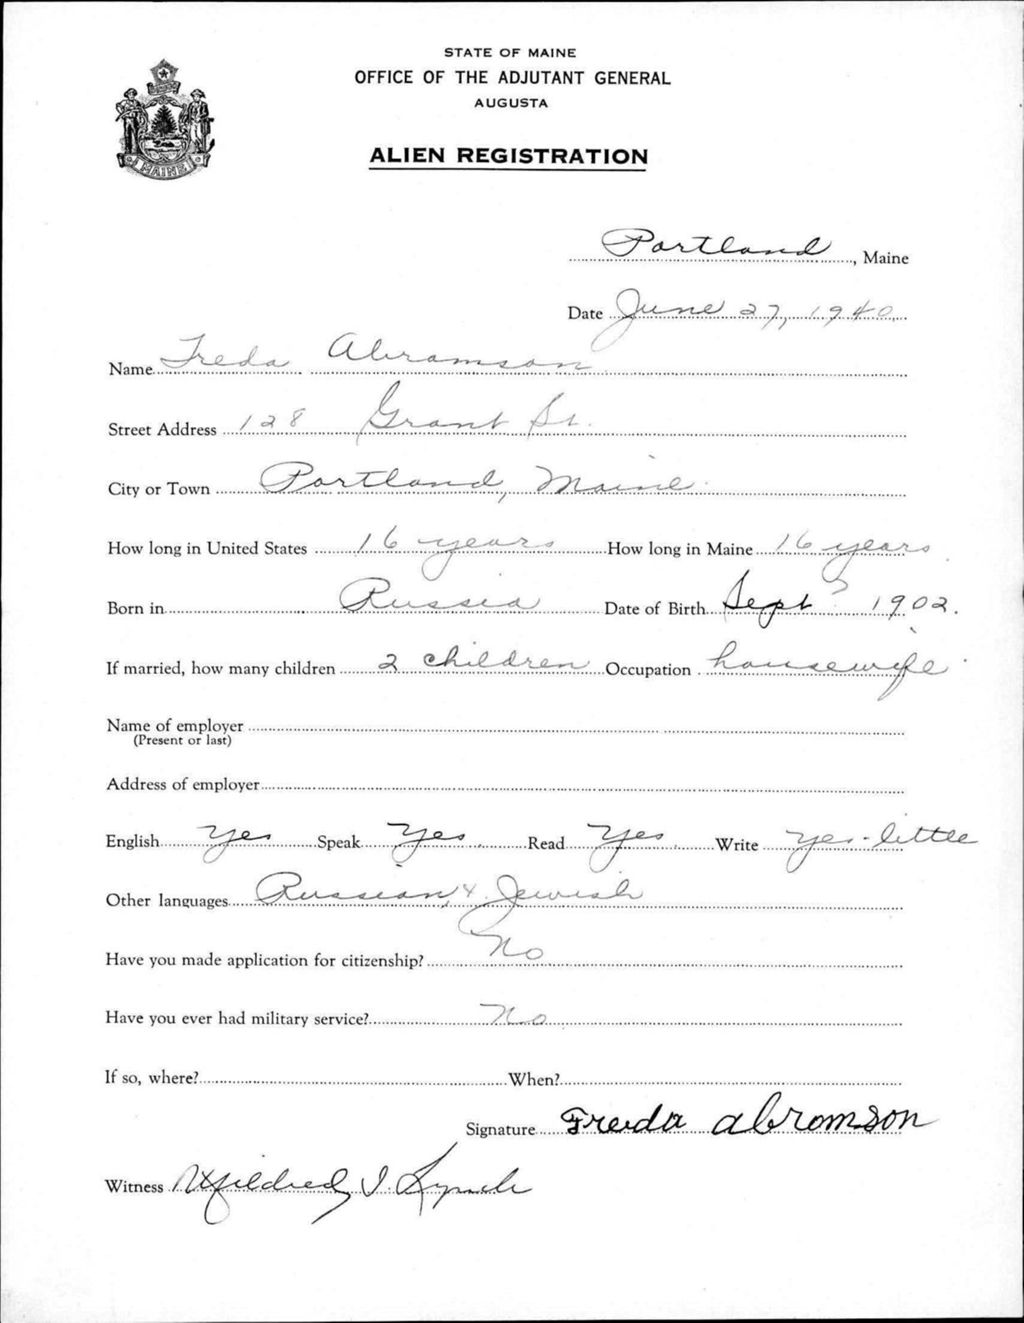 STATE OF MAINE
OFFICE OF THE ADJUTANT GENERAL
AUGUSTA
ALIEN REGISTRATION
MAINE
Portland, Maine
Date June 27, 1940
Name Freda Abramson
Street Address 128 Grant St.
City or Town Portland, Maine
How long in United States 16 years How long in Maine 16 years
Born in Russia Date of Birth Sept ? 1902.
If married, how many children 2 children Occupation housewife
Name of employer
(Present or last)
Address of employer
English Yes Speak Yes Read Yes Write yes-little
Other languages Russian, & Jewish
Have you made application for citizenship? No
Have you ever had military service? No
If so, where? When?
Signature Freda abromson
Witness Mildred I. Lynch